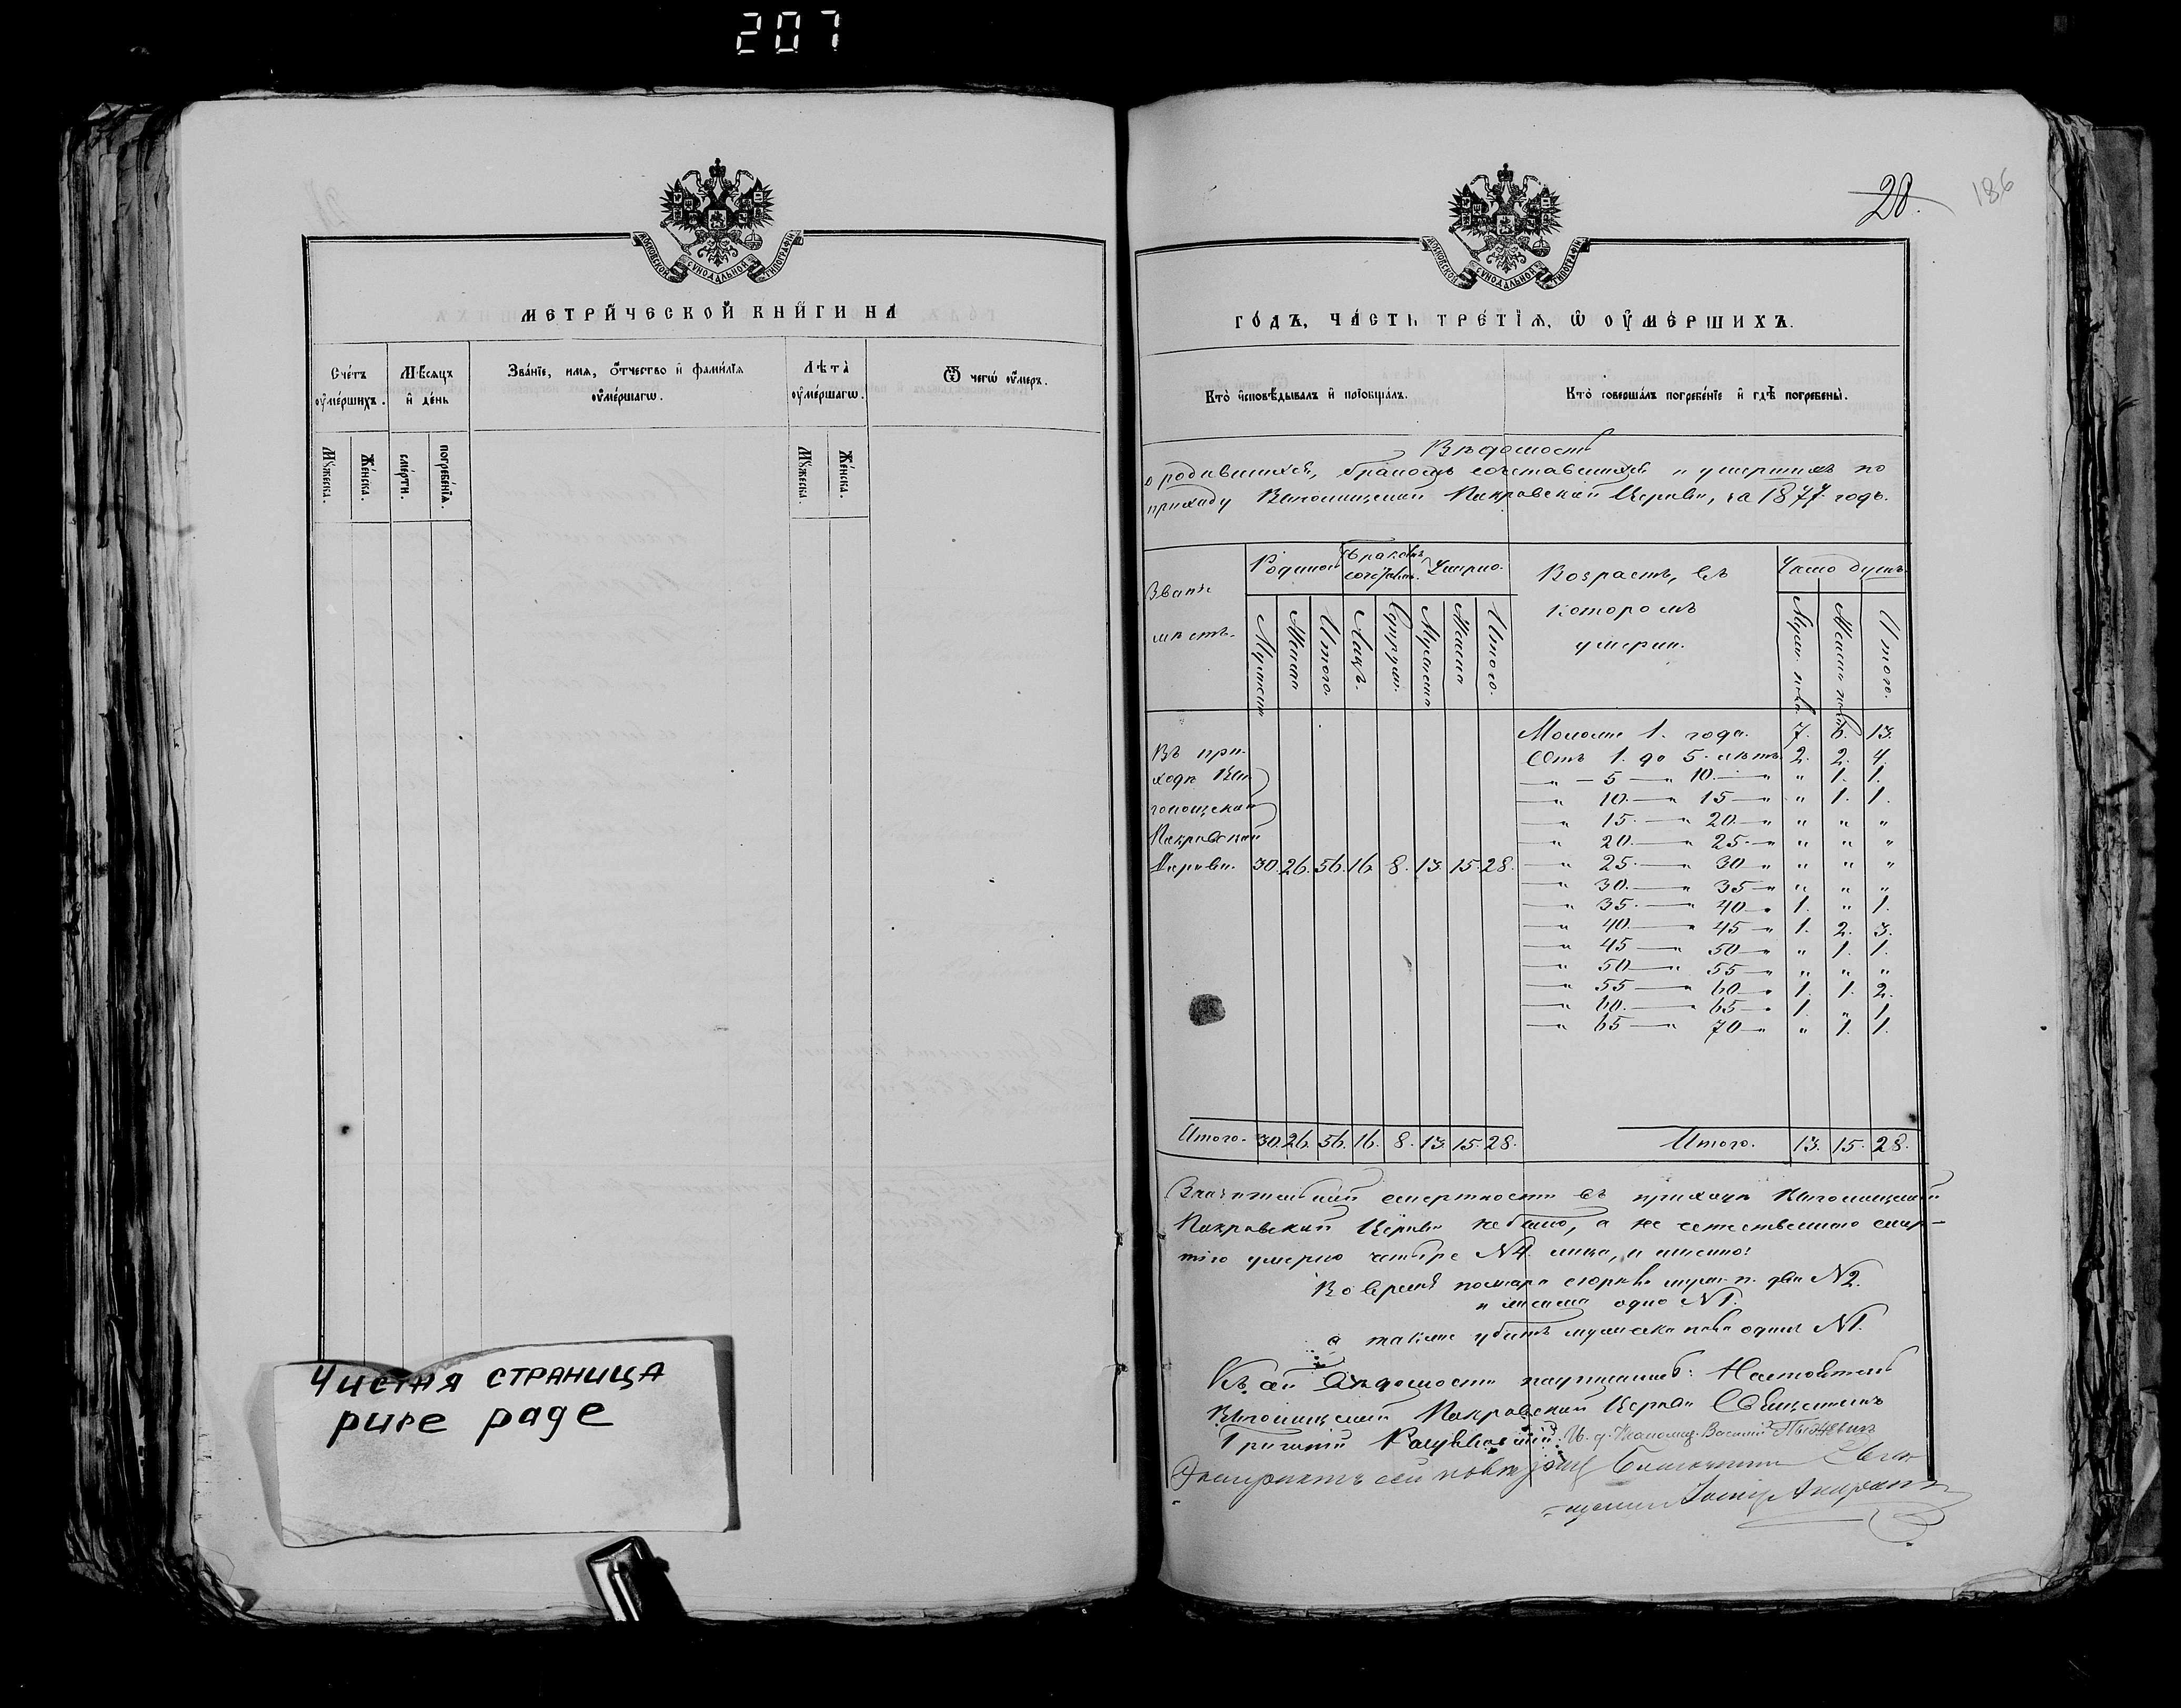 207
МОСКОВСКОЙ СѴНОДАЛЬНОЙ ТИПОГРАФІИ
МЕТРИЧЕСКОЙ КНИГИ НА
Счетъ оумершихъ.
Мѣсяцъ и день
Званіе, имя, отчество и фамилія оумершагѡ.
Лѣта оумершагѡ.
Ѿ чегѡ оумеръ.
Мꙋжеска.
Женска.
смерти.
погребенїя.
Мꙋжеска.
Женска.
Чистая страница
pure page
28.
186
МОСКОВСКОЙ СѴНОДАЛЬНОЙ ТИПОГРАФІИ
ГОДЪ, ЧАСТЬ ТРЕТІЯ, Ѡ ОУМЕРШИХЪ.
Кто исповѣдывалъ и пріобщалъ.
Кто совершалъ погребеніе и гдѣ погребены.
Вѣдомость
о родившихся, бракомъ сочетавшихся и умершихъ по
приходу Покровской Церкви, за 1877. годъ.
Званіе мѣстъ.
Родилось
Бракомъ сочетались.
Умерло.
Возрастъ, въ
котором
умерли.
Число душъ
Мужеска
Женска
Итого.
Лицъ.
Мужеска
Женска
Итого.
Муж. пола.
Женск. пола
Итого.
Моложе 1. года. 7. 6. 13.
Отъ 1. до 5. лѣтъ. 2. 2. 4.
" — 5 — " 10. — " " 1. 1.
— " 10. — " 15 — " " 1. 1.
— " 15. — " 20. — " " " "
— " 20. — " 25. — " " " "
— " 25. — " 30 — " " " "
— " 30. — " 35 — " " " "
— " 35. — " 40 — " 1. " 1.
— " 40. — " 45 — " 1. 2. 3.
— " 45 — " 50 — " " 1. 1.
— " 50 — " 55 — " " " "
— " 55 — " 60 — " 1. 1. 2.
— " 60. — " 65 — " 1. " 1.
— " 65 — " 70 — " " 1. 1.
Въ при-
ходѣ
Покровской
Церкви. 30. 26. 56. 16. 8. 13. 15. 28.
Итого. 30. 26. 56. 16. 8. 13. 15. 28.
Итого. 13. 15. 28.
Значительной смертности въ приходѣ
Покровской Церкви не было, а не естественною смер-
тію умерло четыре №4. лица, а именно:
Во время пожара сгорѣло муж. п. два №2.
и женска одно №1.
а также убитъ мужеска пола одинъ №1.
Къ сей вѣдомости подписались: Настоятель
Покровской Церкви Священникъ
Григорій И. д. Псаломщ. Василий